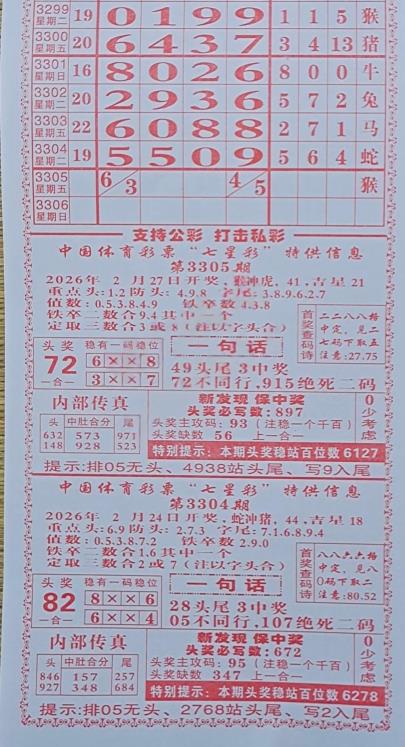 3299 星期二 19 0 1 9 9 1 1 5 猴
3300 星期五 20 6 4 3 7 3 4 13 猪
3301 星期日 16 8 0 2 6 8 0 0 牛
3302 星期二 20 2 9 3 6 5 7 2 兔
3303 星期五 22 6 0 8 8 2 7 1 马
3304 星期二 19 5 5 0 9 5 6 4 蛇
3305 星期五 6/3 4/5 猴
3306 星期日
支持公彩 打击私彩
中国体育彩票“七星彩”特供信息
第3305期
2026年 2月27日开奖,猴冲虎,41,吉星21
重点头:1.2防头:4.9.8 字尾:3.8.9.6.2.7
值数:0.5.3.8.4.9 铁卒数4.3.8
铁卒二数合9,4其中一个
定取三数合3或8(注以字头合)
首奖查码诗
二二八八格
中定,见二
七码下取五
注意:27.75
头奖 稳有一码稳位
72 6 × × 8
一合一 3 × × 7
一句话
49头尾3中奖
72不同行,915绝死二码
内部传真
头 中肚合分 尾
632 573 971
148 928 523
新发现 保中奖
头奖必写数:897
头奖主攻码:93(注稳一个千百)
头奖缺数 56 上一合一
0少考虑
特别提示:本期头奖稳站百位数6127
提示:排05无头、4938站头尾、写9入尾
中国体育彩票“七星彩”特供信息
第3304期
2026年 2月24日开奖,蛇冲猪,44,吉星18
重点头:6.9防头:2.7.3 字尾:7.1.6.8.9.4
值数:0.5.3.8.7.2 铁卒数2.9.0
铁卒二数合1,6其中一个
定取三数合2或7(注以字头合)
首奖查码诗
八八六六格
中定,见八
0码下取二
注意:80.52
头奖 稳有一码稳位
82 8 × × 6
一合一 6 × × 4
一句话
28头尾3中奖
05不同行,107绝死二码
内部传真
头 中肚合分 尾
846 157 257
927 348 684
新发现 保中奖
头奖必写数:672
头奖主攻码:95(注稳一个千百)
头奖缺数 347 上一合一
0少考虑
特别提示:本期头奖稳站百位数6278
提示:排05无头、2768站头尾、写2入尾